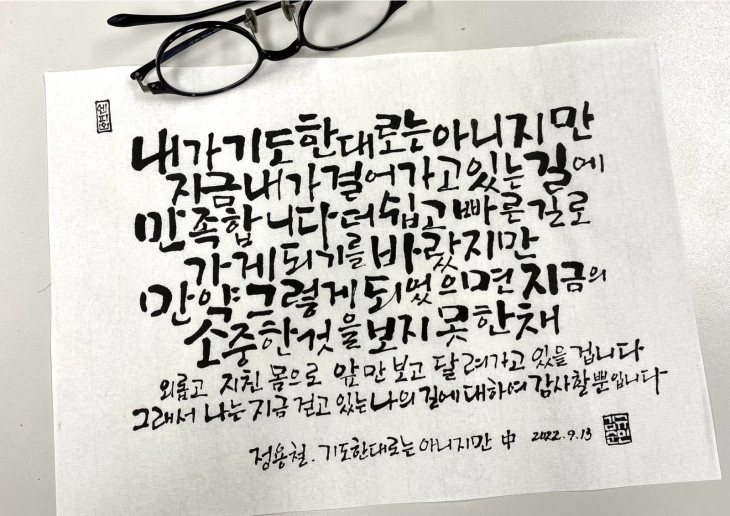 내가 기도한대로는 아니지만
지금 내가 걸어가고 있는 길에
만족합니다 더 쉽고 빠른 길로
가게 되기를 바랐지만
만약 그렇게 되었으면 지금의
소중한 것을 보지 못한 채
외롭고 지친 몸으로 앞만 보고 달려가고 있을 겁니다
그래서 나는 지금 걷고 있는 나의 길에 대하여 감사할 뿐입니다
정용철. 기도한대로는 아니지만 中 2022.9.13